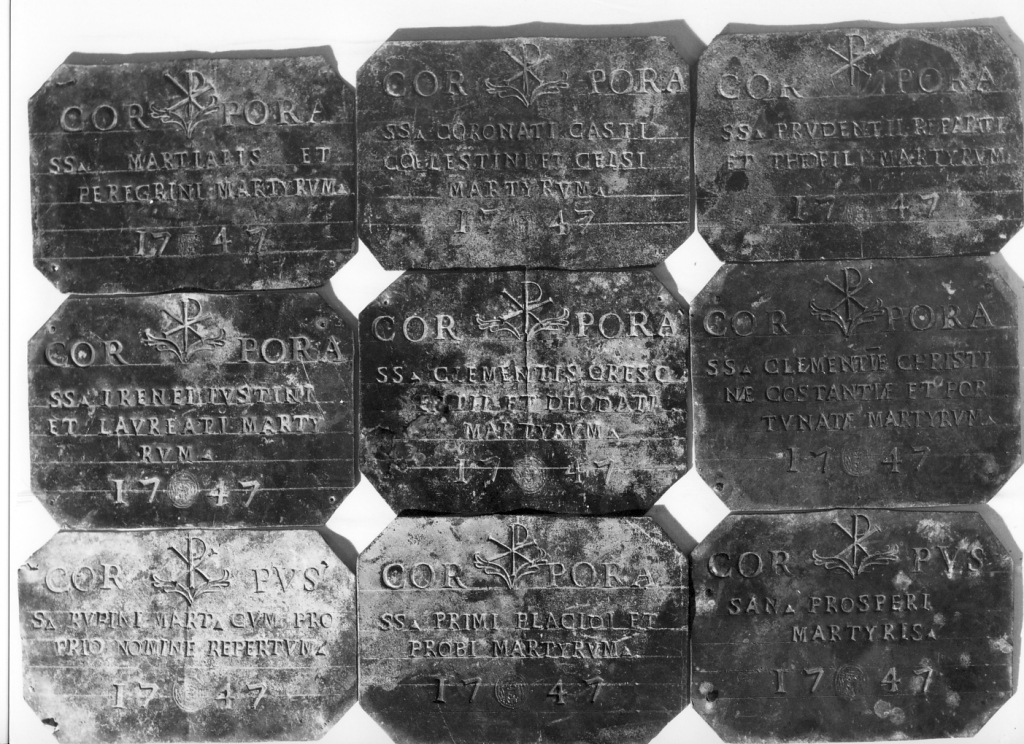 COR PORA
SS▵ MARTIALIS ET
PEREGRINI MARTYRVM▵
17 47
COR PORA
SS▵ CORONATI CASTI
COELESTINI ET CELSI
MARTYRVM▵
17 47
COR PORA
SS▵ PRVDENTII REPARATI
ET MARTYRVM
17 47
COR PORA
SS▵ IRENEI IVSTINI
ET LAVREATI MARTY
RVM▵
17 47
COR PORA
SS▵ CLEMENTIS CRESC
ET DEODATI
MARTYRVM▵
17 47
COR PORA
SS▵ CLEMENTIÆ CHRISTI
NÆ COSTANTIÆ ET FOR
TVNATÆ MARTYRVM▵
17 47
COR PVS
S▵ MART▵ CVM PRO
PRIO NOMINE REPERTVM▵
17 47
COR PORA
SS▵ PRIMI PLACIDI ET
PROBI MARTYRVM▵
17 47
COR PVS
SAN▵ PROSPERI
MARTYRIS▵
17 47